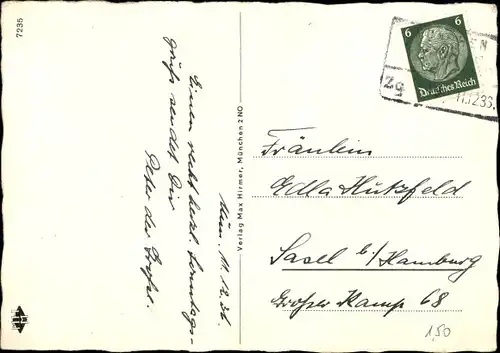 7235
Mün. 11.12.36.
Einen recht herzl. Sonntags-
gruß sendet Dir
Peter der Große.
Verlag Max Hirmer, München 2 NO
6 6
Deutsches Reich
Zg
11.12.33.
Fräulein
Edla Hutzfeld
Sasel b/Hamburg
Großer Kamp 68
1,50